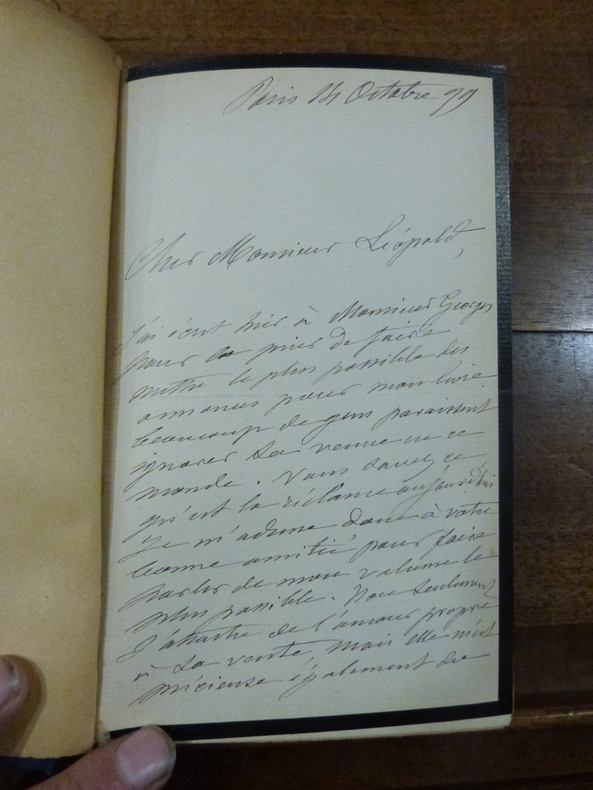 Paris 14 Octobre 99
Cher Monsieur Léopold,
J'ai écrit hier à Monsieur Georges
pour le prier de faire
mettre le plus possible des
annonces pour mon livre
beaucoup de gens paraissent
ignorer sa venue en ce
monde. Vous savez ce
qu'est la réclame aujourd'hui
je m'adresse donc à votre
bonne amitié pour faire
parler de mon volume le
plus possible. Non seulement
j'attache de l'amour propre
à sa vente, mais elle m'est
précieuse également de